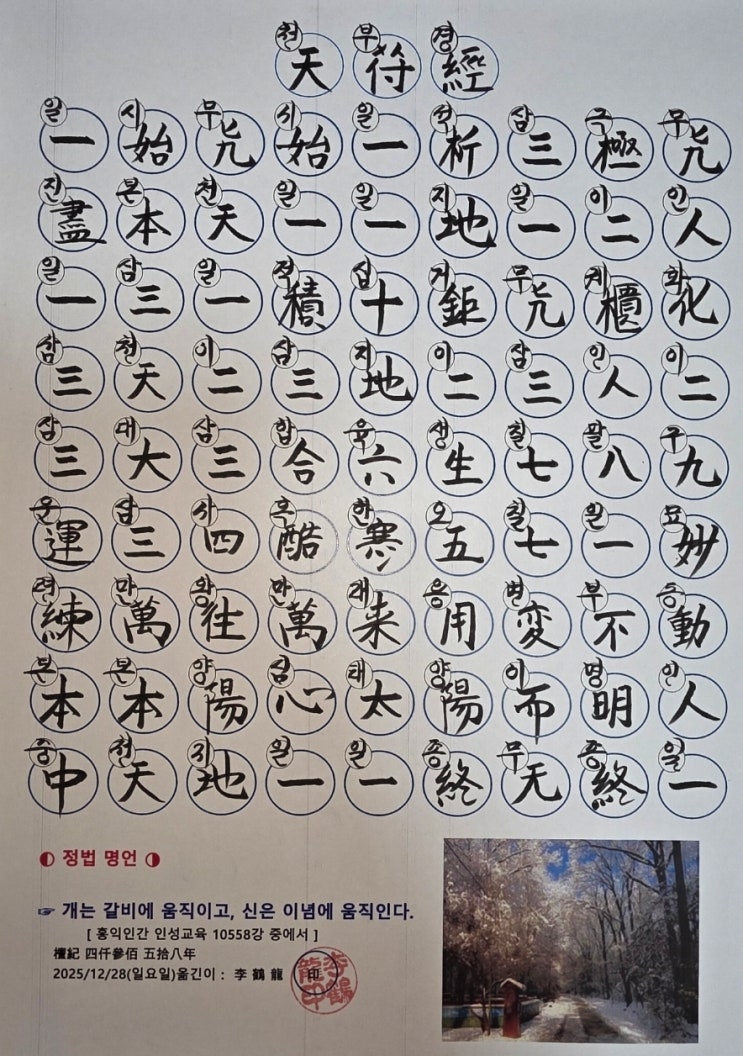 천天 부符 경經
일一 시始 무旡 시始 일一 석析 삼三 극極 무旡
진盡 본本 천天 일一 일一 지地 일一 이二 인人
일一 삼三 일一 적積 십十 거鉅 무旡 궤櫃 화化
삼三 천天 이二 삼三 지地 이二 삼三 인人 이二
삼三 대大 삼三 합合 육六 생生 칠七 팔八 구九
운運 삼三 사四 혹酷 한寒 오五 칠七 일一 묘妙
련練 만萬 왕往 만萬 래来 용用 변変 부不 동動
본本 본本 양陽 심心 태太 양陽 이而 명明 인人
중中 천天 지地 일一 일一 종終 무无 종終 일一
◐ 정법 명언 ◑
☞ 개는 갈비에 움직이고, 신은 이념에 움직인다.
[ 홍익인간 인성교육 10558강 중에서 ]
檀紀 四仟參佰 五拾八年
2025/12/28(일요일)옮긴이 : 李 鶴 龍 印